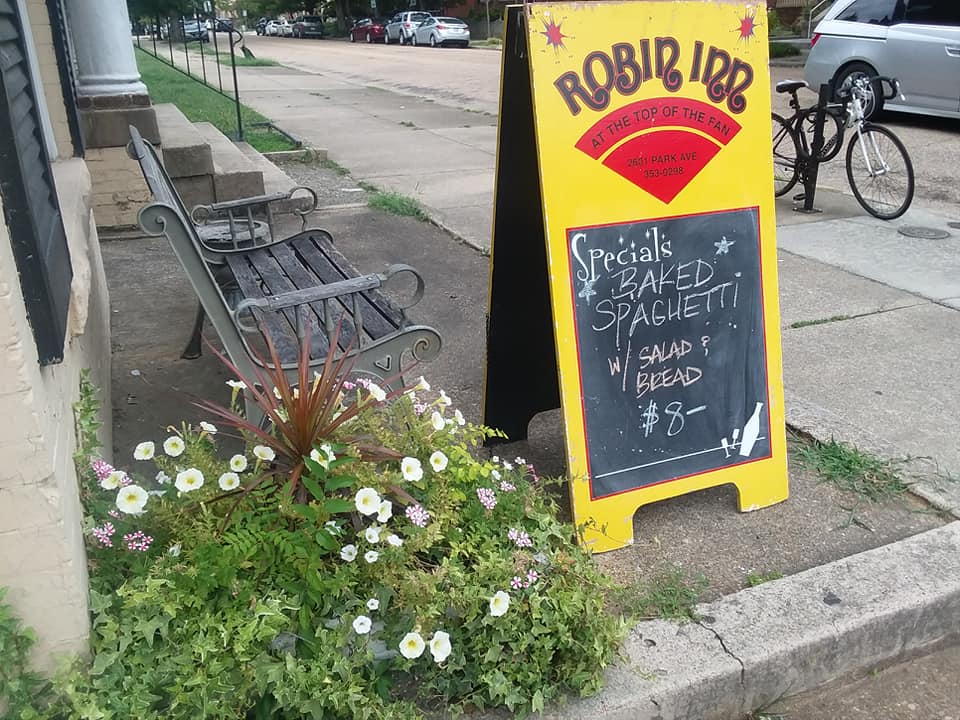 ROBIN INN
AT THE TOP OF THE FAN
2601 PARK AVE
353-0298
Specials
BAKED
SPAGHETTi
W/ SALAD &
BREAD
$8-